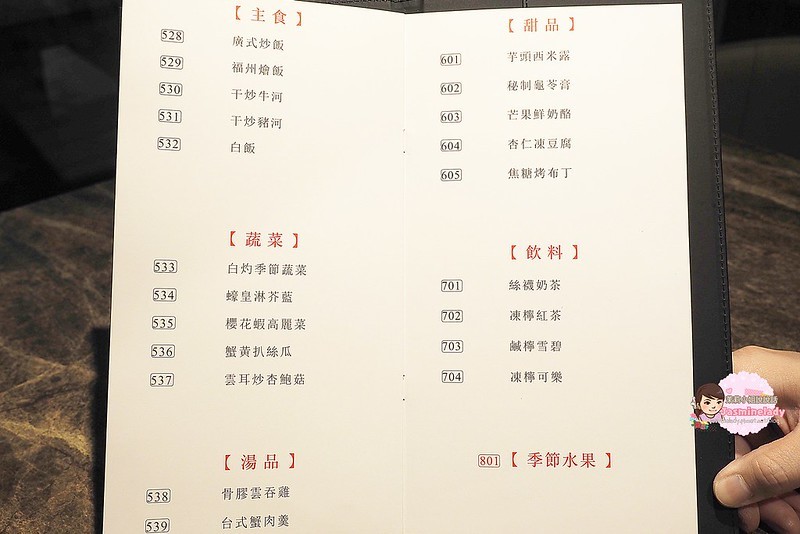 【主食】
528 廣式炒飯
529 福州燴飯
530 干炒牛河
531 干炒豬河
532 白飯
【蔬菜】
533 白灼季節蔬菜
534 蠔皇淋芥藍
535 櫻花蝦高麗菜
536 蟹黃扒絲瓜
537 雲耳炒杏鮑菇
【湯品】
538 骨膠雲吞雞
539 台式蟹肉羹
【甜品】
601 芋頭西米露
602 秘制龜苓膏
603 芒果鮮奶酪
604 杏仁凍豆腐
605 焦糖烤布丁
【飲料】
701 絲襪奶茶
702 凍檸紅茶
703 鹹檸雪碧
704 凍檸可樂
801【季節水果】
Jasminelady